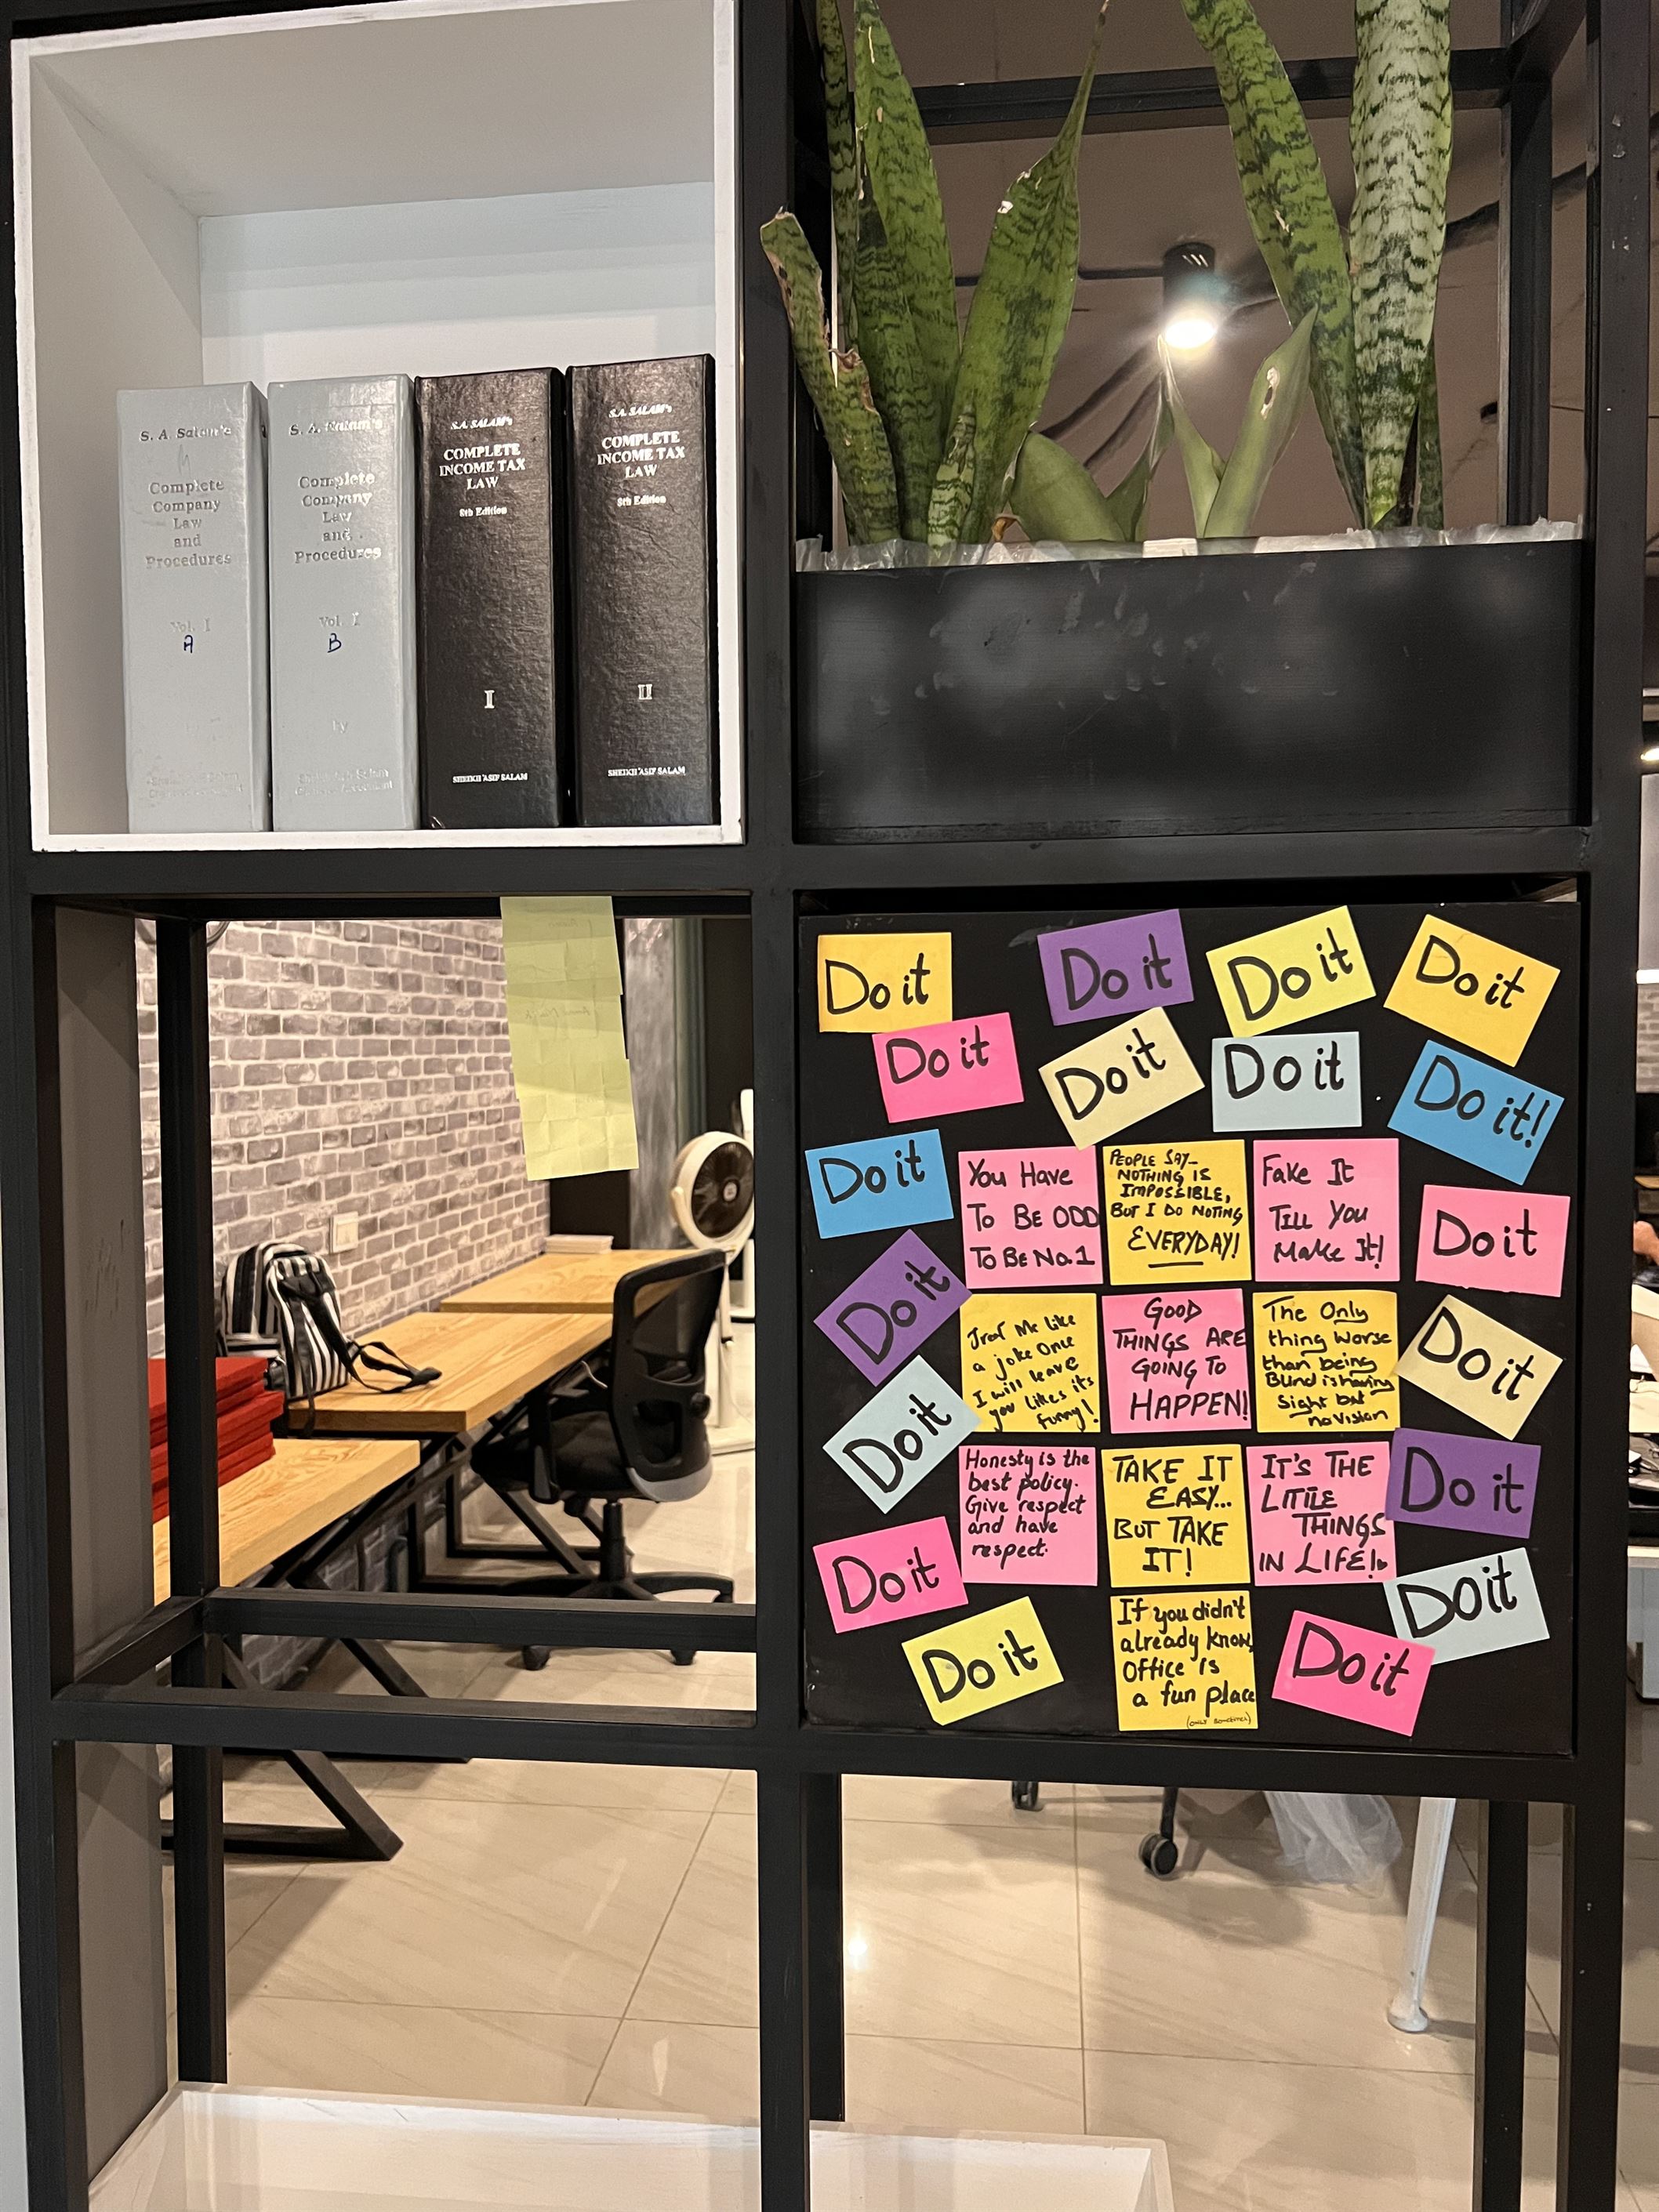 S. A. Salam's
Complete
Company
Law
and
Procedures
Vol. I
A
S. A. Salam's
Complete
Company
Law
and
Procedures
Vol. I
B
by
S.A. SALAM's
COMPLETE
INCOME TAX
LAW
8th Edition
I
SHEIKH ASIF SALAM
S.A. SALAM's
COMPLETE
INCOME TAX
LAW
8th Edition
II
SHEIKH ASIF SALAM
Do it
Do it
Do it
Do it
Do it
Do it
Do it
Do it!
Do it
You Have
To BE ODD
To BE No.1
PEOPLE SAY_
NOTHING IS
IMPOSSIBLE,
BUT I DO NOTING
EVERYDAY!
Fake It
Till You
Make It!
Do it
Do it
Treat Me like
a joke One
I will leave
you likes its
funny!
GOOD
THINGS ARE
GOING TO
HAPPEN!
The Only
thing worse
than being
Blind is having
Sight but
no vision
Do it
Do it
Honesty is the
best policy.
Give respect
and have
respect.
TAKE IT
EASY...
BUT TAKE
IT!
IT'S THE
LITTLE
THINGS
IN LIFE!
Do it
Do it
Do it
If you didn't
already know,
Office is
a fun place
(only sometimes)
Do it
Do it